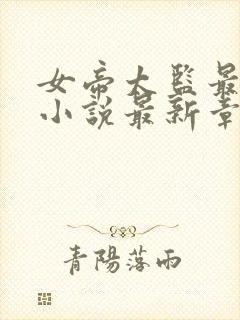 女帝大監最
小說最新章
青陽落雨